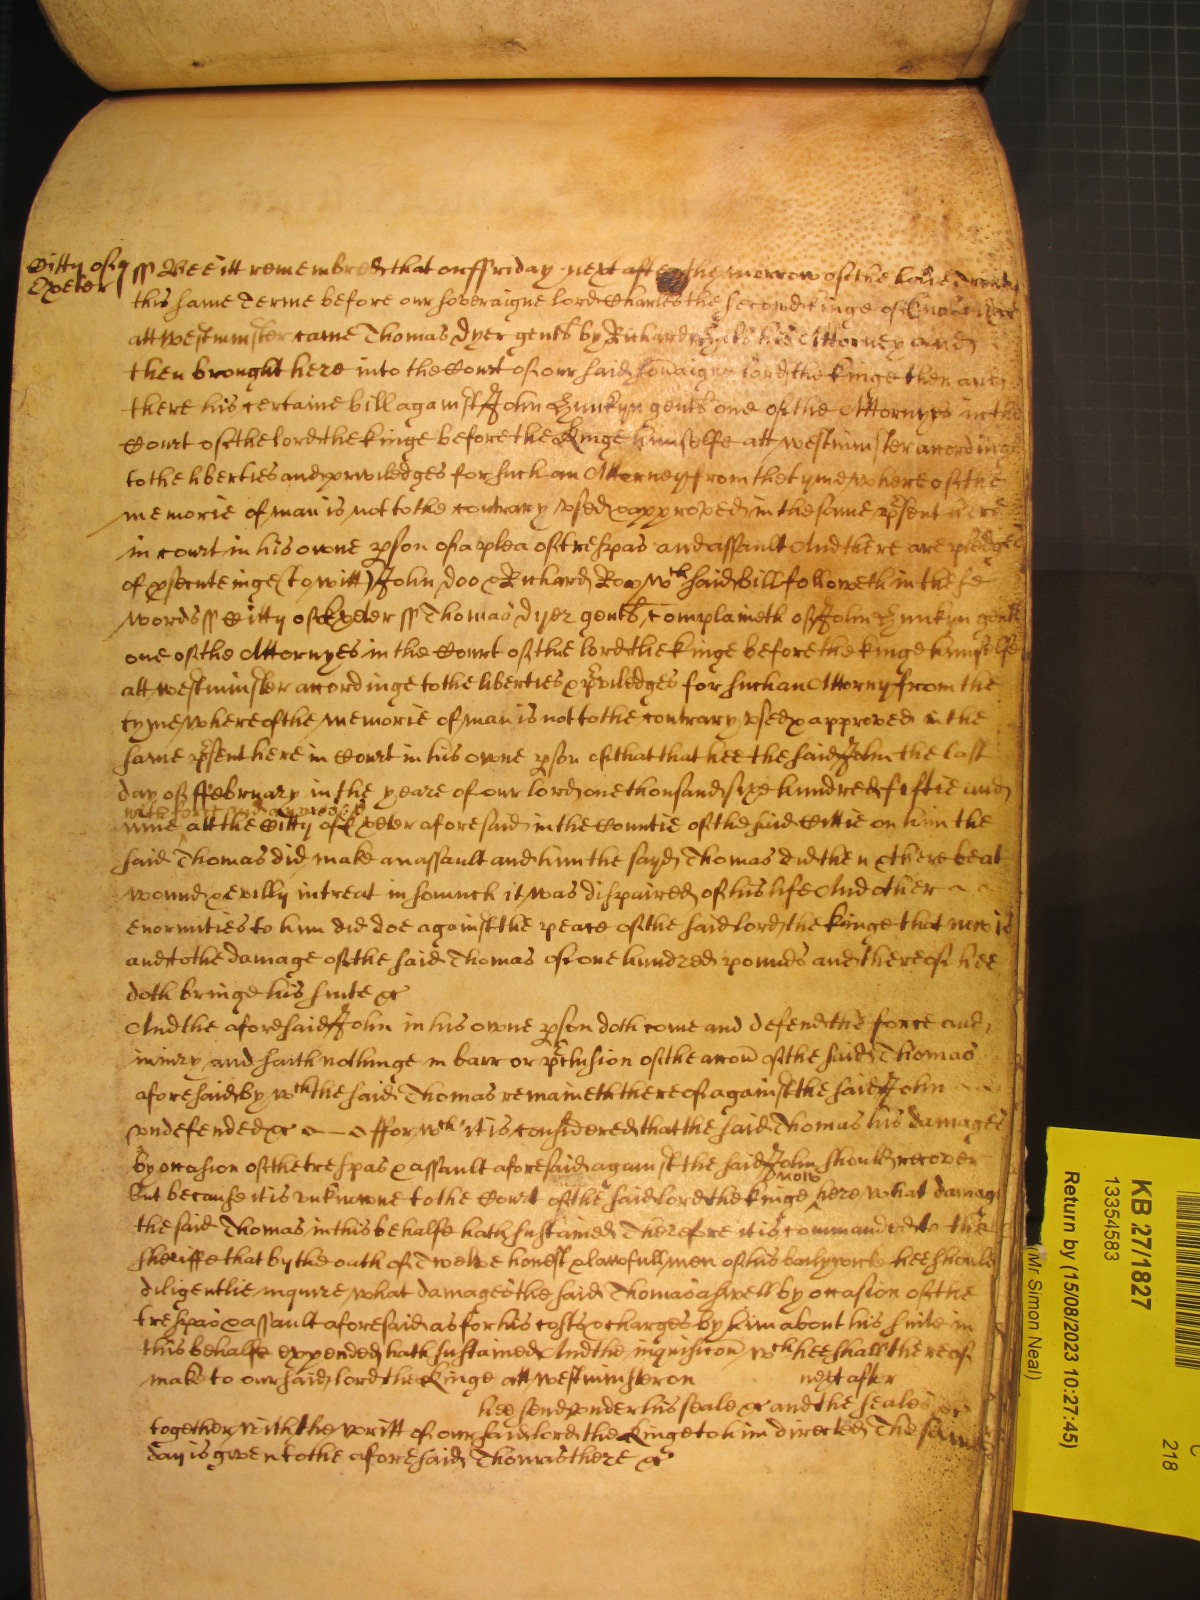 Citty of
Exeter
ss Bee itt remembred that on ffriday next after the morrow of the holie
this same Terme before our soveraigne lord Charles the second kinge of England &c
att westminster came Thomas Dyer gentl by Richard his Attorney and
then brought here into the Court of our said sovaigne lord the kinge then and
there his certaine bill against John gentl one of the Attornyes in the
Court of the lord the kinge before the Kinge himselfe att westminster accordinge
to the liberties and priviledges for such an Attorney from the tyme where of the
memorie of man is not to the contrary vsed & approved in the same psent here
in court in his owne pson of a plea of trespas and assault And there are pledges
of psecuteinge (to witt) John doo & Richard Roo wch said bill followeth in these
words ss Citty of Exeter ss Thomas Dyer gentl complaineth of John gentl
one of the Attornyes in the Court of the lord the kinge before the kinge himselfe
att westminster accordinge to the liberties & priviledges for such an Attorny from the
tyme whereof the memorie of man is not to the contrary vsed & approved in the
same psent here in Court in his owne pson of that that hee the said John the last
day of ffebruary in the yeare of our lord one thousand sixe hundred fiftie and
with force and armes &c
nine att the Citty of Exeter aforesaid in the Countie of the said Cittie on him the
said Thomas did make an assault and him the sayd Thomas did then & there beat
wound & evilly intreat in somuch it was dispaired of his life And other
enormities to him did doe against the peace of the said lord the kinge that now is
and to the damage of the said Thomas of one hundred pounds and thereof hee
doth bringe his suite &c
And the aforesaid John in his owne pson doth come and defend the force and
iniury and saith nothinge in barr or pclusion of the accon of the said Thomas
aforesaid by wch the said Thomas remaineth thereof against the said John
vndefended &c ffor wch it is considered that the said Thomas his damages
by occasion of the trespas & assault aforesaid against the said John should recover
now
But because it is vnknowne to the Court of the said lord the kinge here what damage
the said Thomas in this behalfe hath sustained Therefore it is commanded to the
sheriffe that by the oath of Twelve honest & lawfull men of his baylywick hee should
diligentlie inquire what damages the said Thomas aswell by occasion of the
trespas & assault aforesaid as for his costs & charges by him about his suite in
this behalfe expended hath sustained And the inquisicon wch hee shall thereof
make to our said lord the Kinge att westminster on next after
hee send vnder his seale &c and the seales
together with the writt of our said lord the Kinge to him directed The same
day is given to the aforesaid Thomas there &c
KB 27/1827
13354583
Return by (15/08/2023 10:27:45)
(Mr Simon Neal)
218